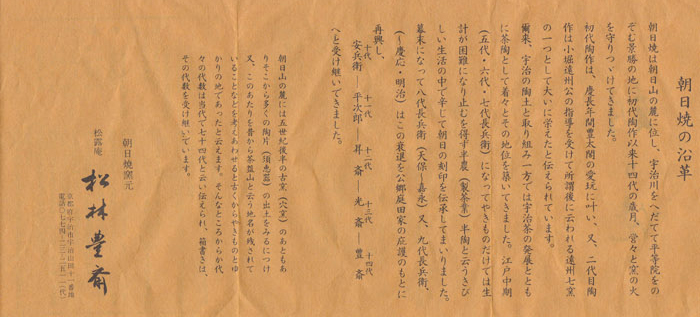 朝日焼の沿革
朝日焼は朝日山の麓に位し、宇治川をへだてて平等院をの
ぞむ景勝の地に初代陶作以来十四代の歳月、営々と窯の火
を守りつゞけてきました。
初代陶作は、慶長年間豊太閤の愛玩に叶い、又、二代目陶
作は小堀遠州公の指導を受けて所謂後に云われる遠州七窯
の一つとして大いに栄えたと伝えられています。
爾来、宇治の陶土と取り組み一方では宇治茶の発展ととも
に茶陶として着々とその地位を築いてきました。江戸中期
(五代・六代・七代長兵衛)になってやきものだけでは生
計が困難になり止むを得ず半農(製茶業)半陶と云うきび
しい生活の中で辛じて朝日の刻印を伝承してまいりました。
幕末になって八代長兵衛(天保・嘉永)又、九代長兵衛、
(〜慶応・明治)はこの衰退を公卿庭田家の庇護のもとに
再興し、
十代 十一代 十二代 十三代 十四代
安兵衛 ― 平次郎 ― 昇斎 ― 光斎 ― 豊斎
へと受け継いできました。
朝日山の麓には五世紀後半の古窯(穴窯)のあともあ
りそこから多くの陶片(須恵器)の出土をみるにつけ
又、このあたりを昔から茶盌山と云う地名が残されて
いることなどを考えあわせると古くからやきものとゆ
かりの地であったと云えます。そんなところからか代
々の代数を当代で七十四代と云い伝えられ、箱書きは、
その代数を受け継いています。
朝日焼窯元
松露庵 松林豊斎
京都府宇治市宇治山田十一番地
電話〇七七四-二三-二五一一(代)